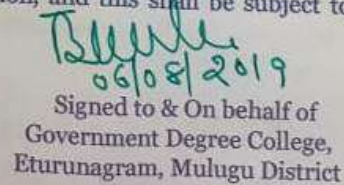 on, and this shall be subject to
06/08/2019
Signed to & On behalf of
Government Degree College,
Eturunagram, Mulugu District